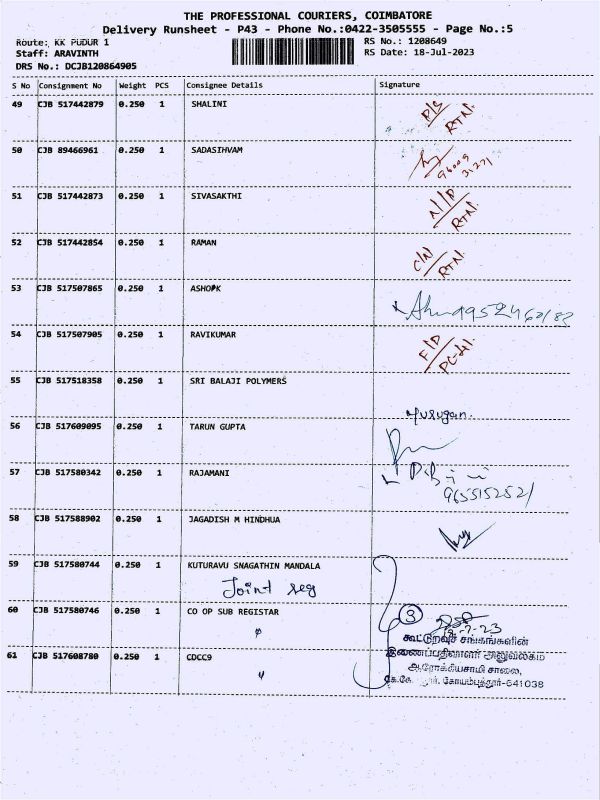 THE PROFESSIONAL COURIERS, COIMBATORE
Delivery Runsheet - P43 - Phone No.:0422-3505555 - Page No.:5
Route: KK PUDUR 1 RS No.: 1208649
Staff: ARAVINTH RS Date: 18-Jul-2023
DRS No.: DCJB120864905
S No Consignment No Weight PCS Consignee Details Signature
49 CJB 517442879 0.250 1 SHALINI
RTN.
50 CJB 89466961 0.250 1 SADASIHVAM
96009
31271
51 CJB 517442873 0.250 1 SIVASAKTHI
RTN.
52 CJB 517442854 0.250 1 RAMAN
C/N/
RTN.
53 CJB 517507865 0.250 1 ASHOPK
54 CJB 517507905 0.250 1 RAVIKUMAR
F/D
55 CJB 517518358 0.250 1 SRI BALAJI POLYMERS
Murugan.
56 CJB 517609095 0.250 1 TARUN GUPTA
57 CJB 517580342 0.250 1 RAJAMANI
9655152521
58 CJB 517588902 0.250 1 JAGADISH M HINDHUA
59 CJB 517580744 0.250 1 KUTURAVU SNAGATHIN MANDALA
Joint reg
60 CJB 517580746 0.250 1 CO OP SUB REGISTAR
3
கூட்டுறவுச் சங்கங்களின்
61 CJB 517608780 0.250 1 CDCC9
இணைப்பதிவாளர் அலுவலகம்
ஆரோக்கியசாமி சாலை,
கோயம்புத்தூர்-641038